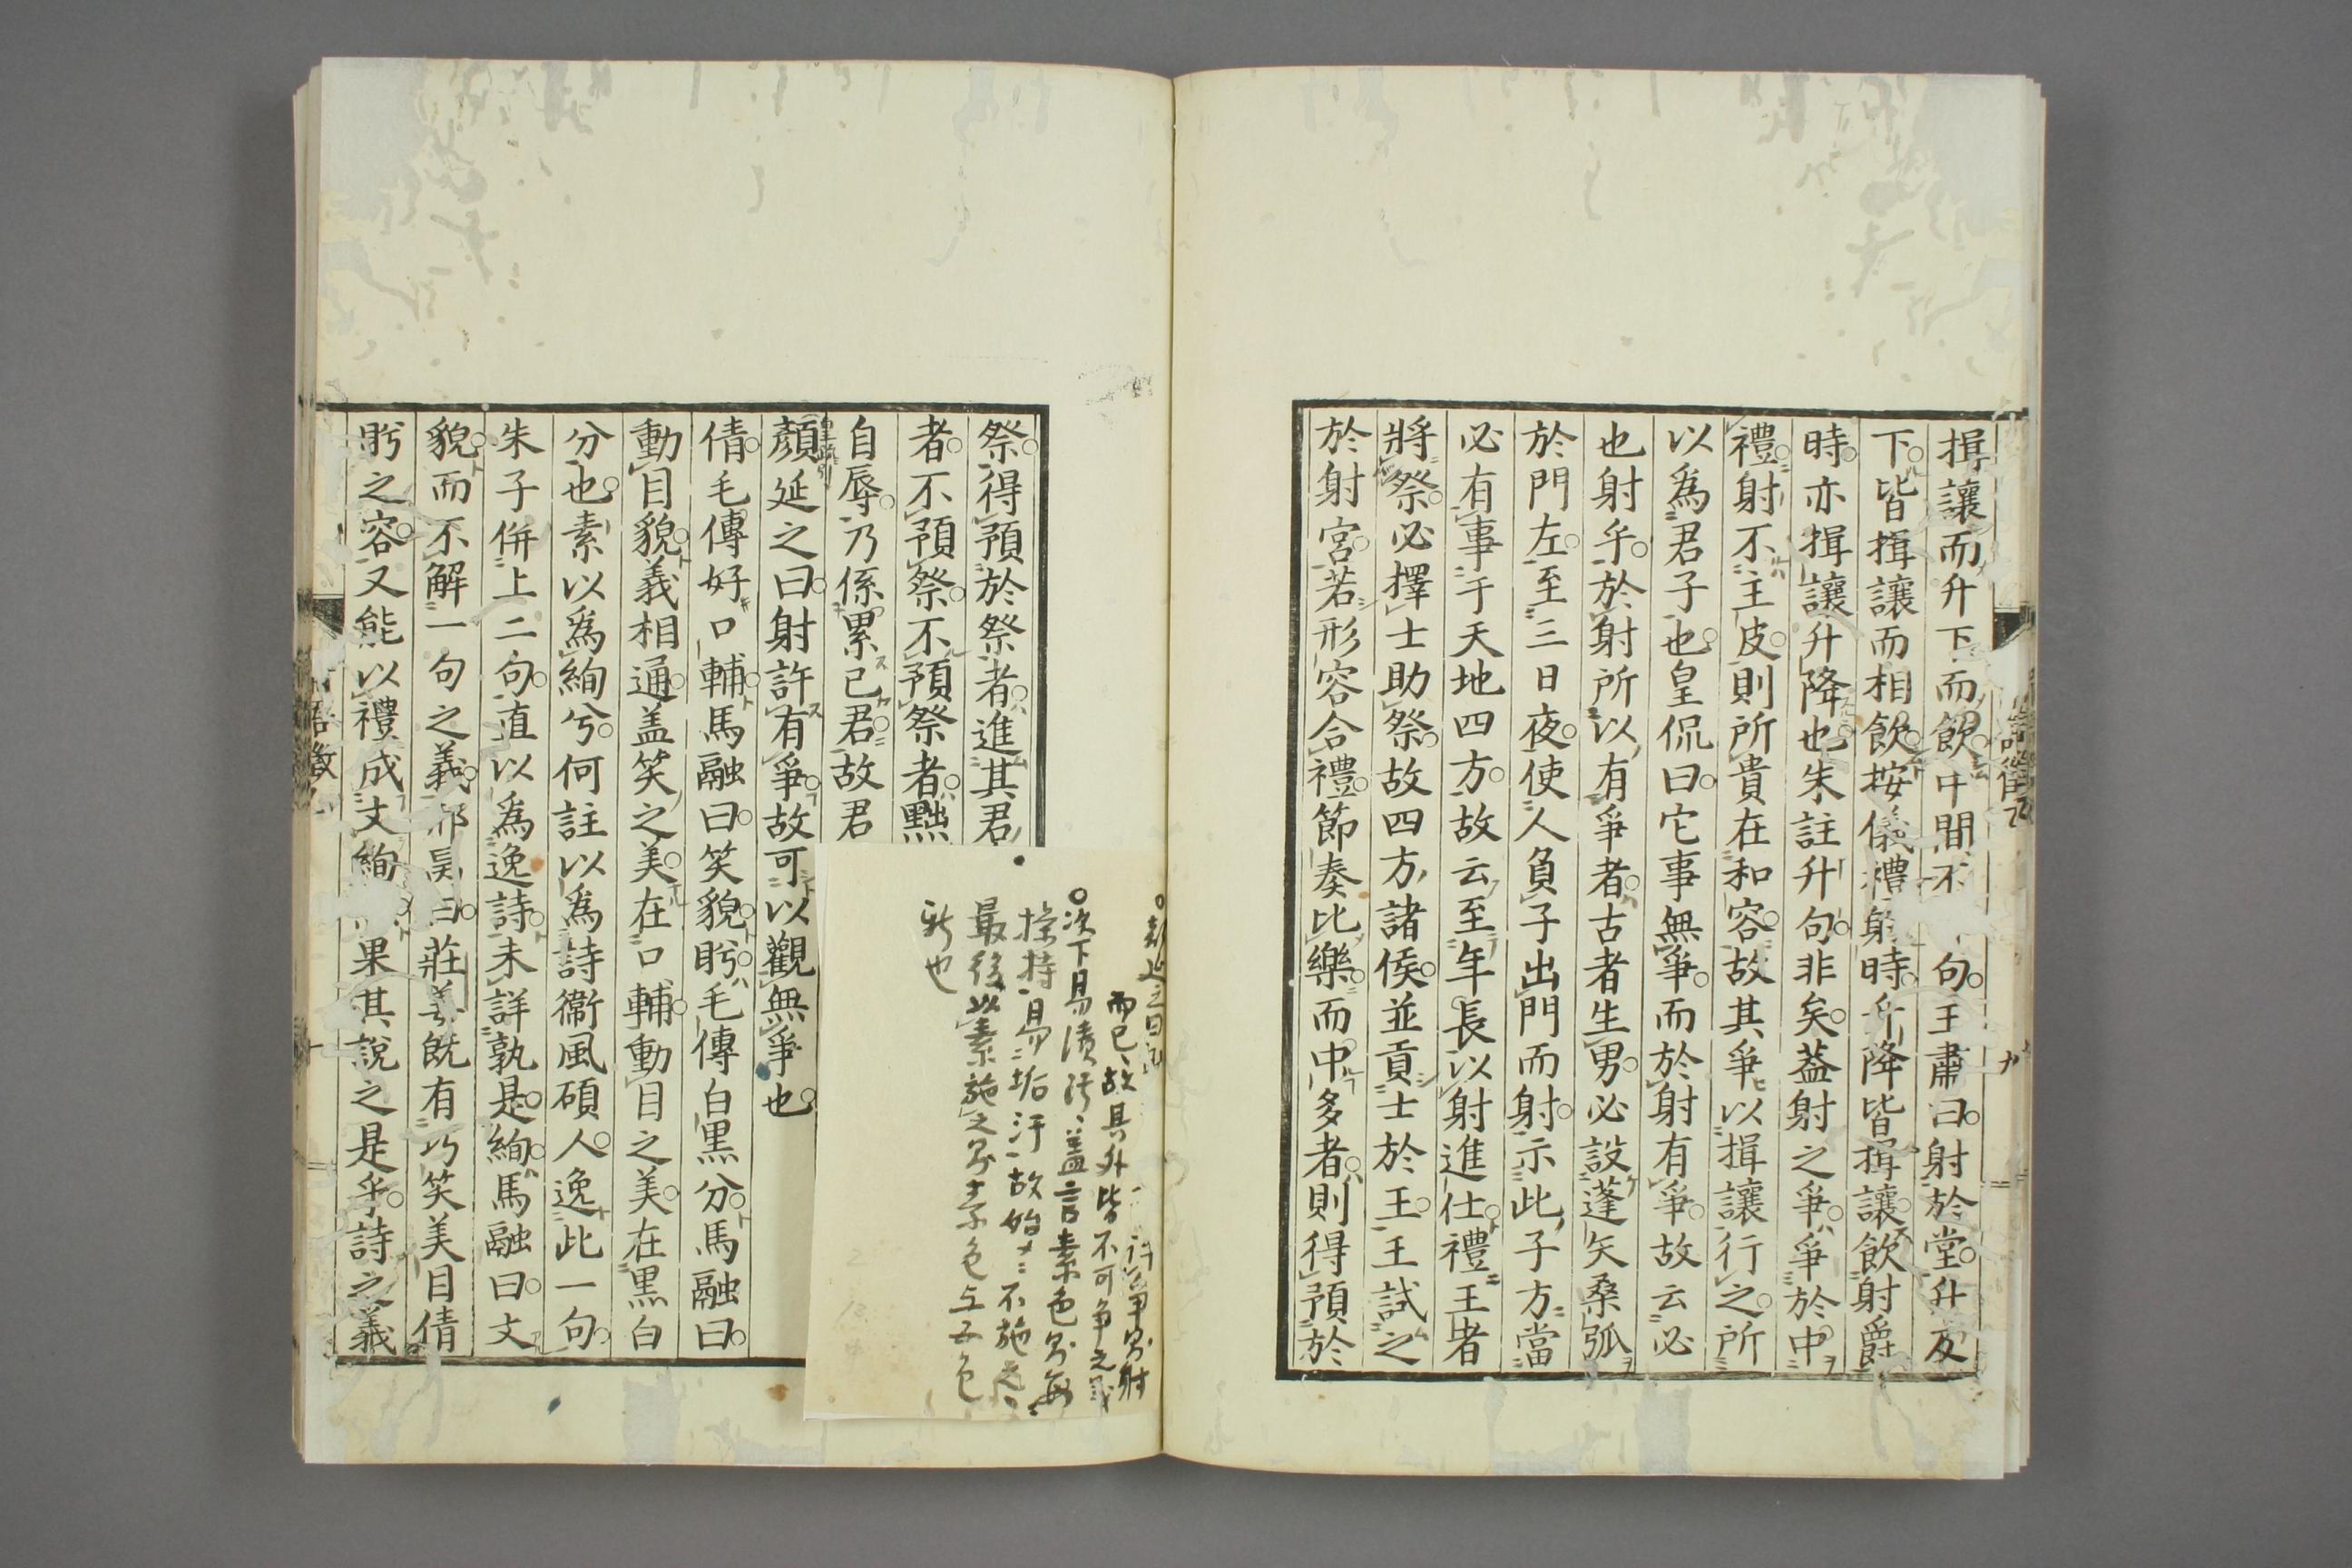 揖讓而升下而飲中間不句王肅曰射於堂升及
下皆揖讓而相飲按儀禮射時升降皆揖讓飲射爵
時亦揖讓升降也朱註升句非矣蓋射之爭爭於中
禮射不主皮則所貴在和容故其爭以揖讓行之所
以爲君子也皇侃曰它事無爭而於射有爭故云必
也射乎於射所以有爭者古者生男必設蓬矢桑弧
於門左至三日夜使人負子出門而射示此子方當
必有事于天地四方故云至年長以射進仕禮王者
將祭必擇士助祭故四方諸侯並貢士於王王試之
於射宮若形容合禮節奏比樂而中多者則得預於
祭得預於祭者進其君
者不預祭不預祭者黜
自辱乃係累己君故君
顏延之曰射許有爭故可以觀無爭也
倩毛傳好口輔馬融曰笑貌盼毛傳白黒分馬融曰
動目貌義相通盖笑之美在口輔動目之美在黒白
分也素以爲絢兮何註以爲詩衞風碩人逸此一句
朱子併上二句直以爲逸詩未詳孰是絢馬融曰文
貌而不解一句之義邢昺曰莊姜既有巧笑美目倩
盼之容又能以禮成文絢果其說之是乎詩之義
而已故其升皆不可爭之
○次下易漬汚盖言素色
操持易垢汙故始不施
最後以素施之素色与五色
也